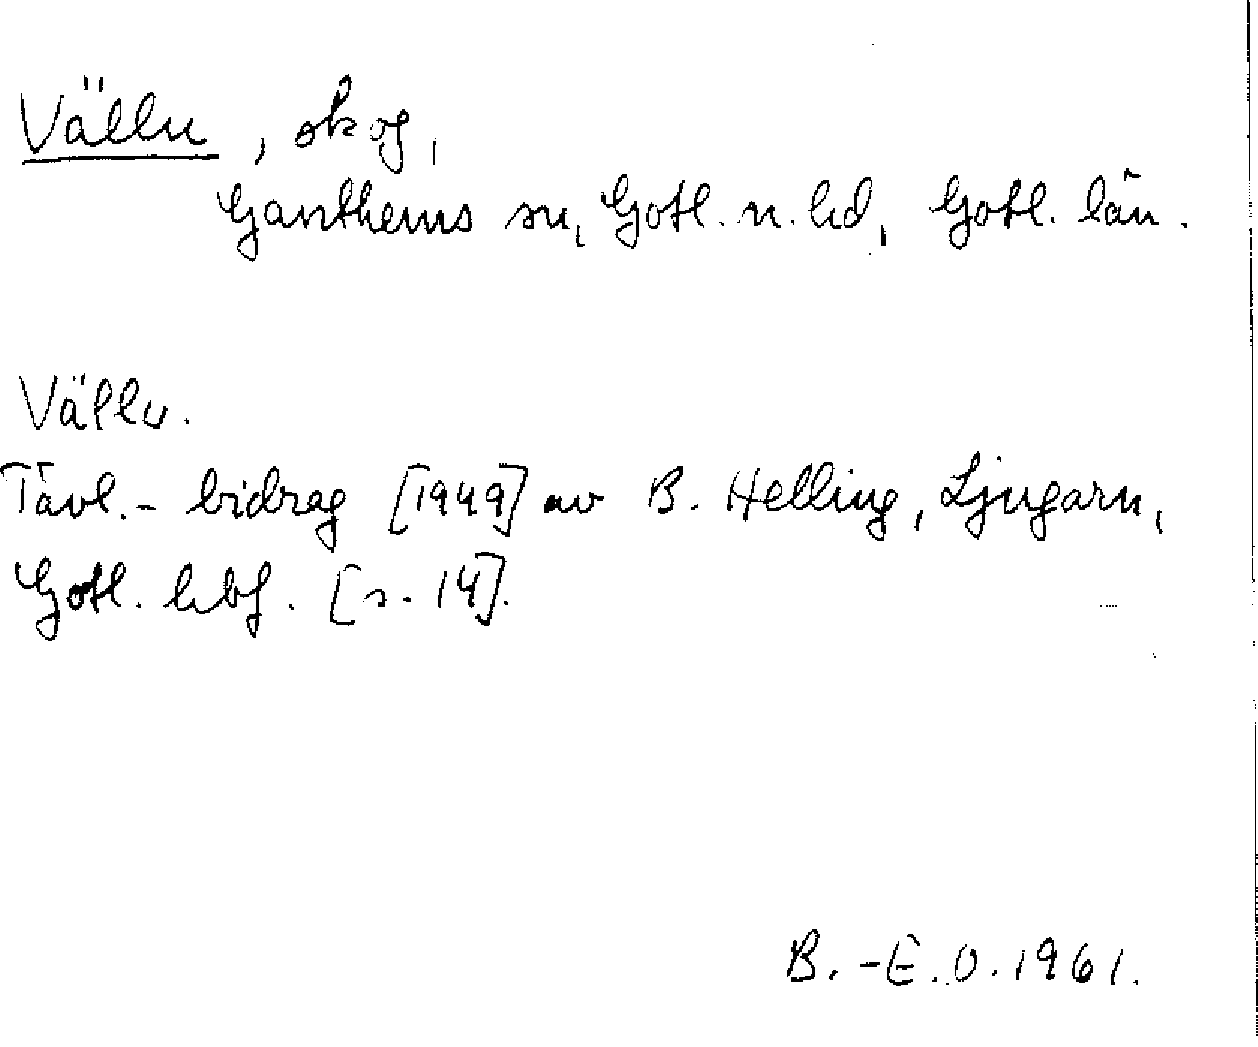 Vällu, skog,
Ganthems sn, Gotl. n. hd, Gotl. län.
Vällu.
Tävl.- bidrag [1949] av B. Helling, Ljugarn,
Gotl. hbf. [s. 14].
B.-E.O. 1961.